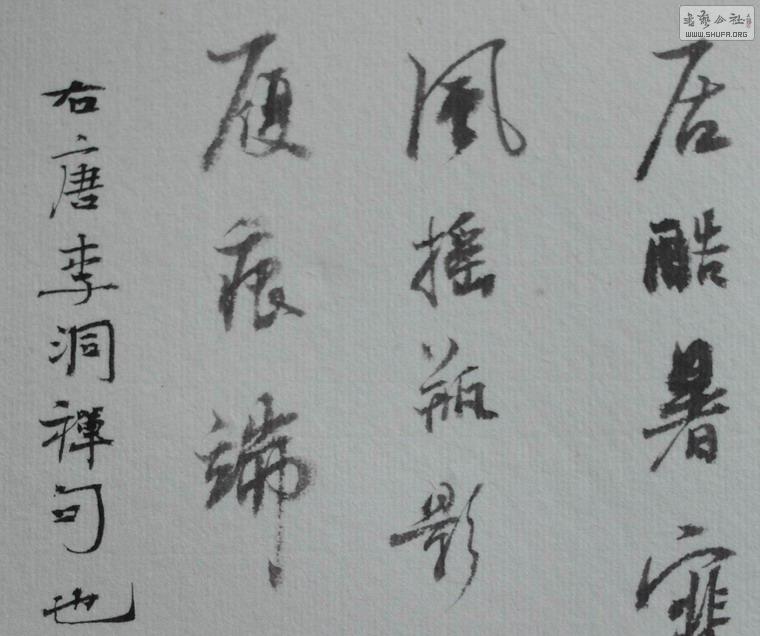 居酷暑
風摇瓶影
履痕端
右唐李洞禪句也
書藝公社
WWW.SHUFA.ORG